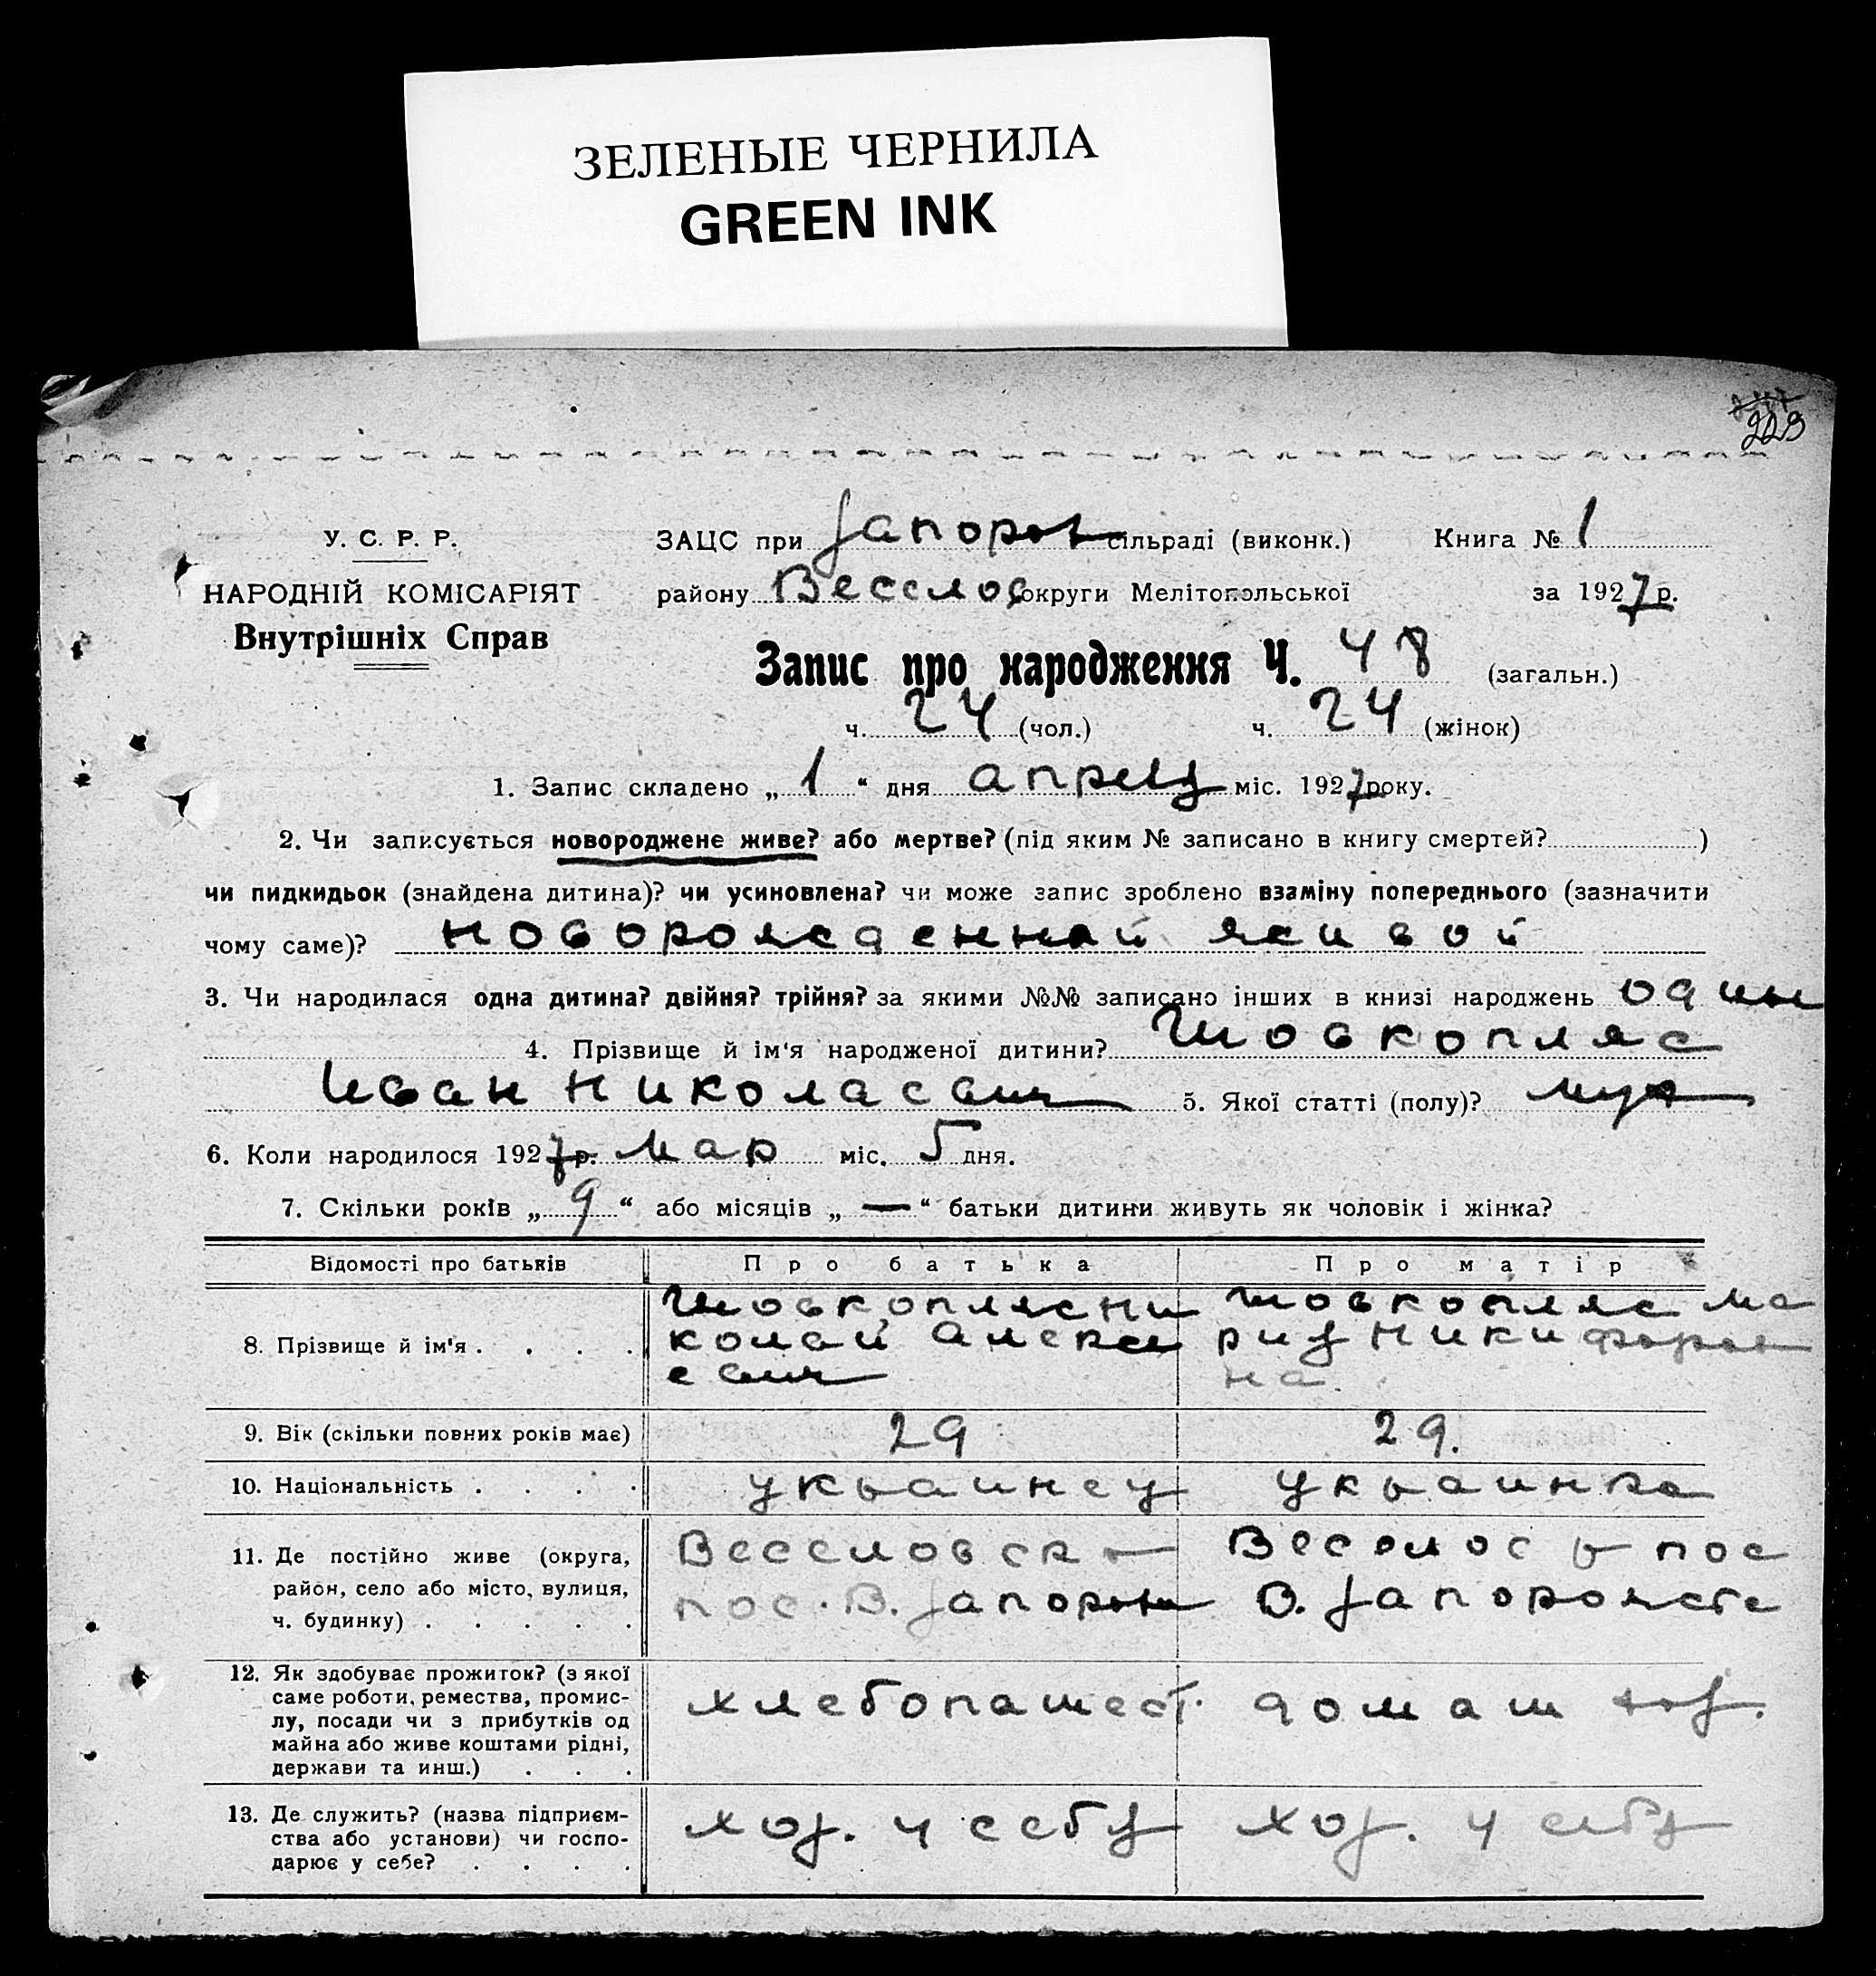 ЗЕЛЕНЫЕ ЧЕРНИЛА
GREEN INK
У. С. Р. Р. ЗАЦС при Запорож сільраді (виконк.) Книга № 1
НАРОДНІЙ КОМІСАРІЯТ району Веселов округи Мелітопольської за 1927 р.
Внутрішніх Справ
Запис про народження Ч. 48 (загальн.)
ч. 24 (чол.) ч. 24 (жінок)
1. Запис складено „ 1 “ дня апреля міс. 1927 року.
2. Чи записується новороджене живе? або мертве? (під яким № записано в книгу смертей? )
чи пидкидьок (знайдена дитина)? чи усиновлена? чи може запис зроблено взаміну попереднього (зазначити
чому саме)? новорожденный живой
3. Чи народилася одна дитина? двійня? трійня? за якими №№ записано інших в книзі народжень один
4. Прізвище й ім'я народженої дитини? Шовкопляс
Иван Николаевич 5. Якої статті (полу)? муж
6. Коли народилося 1927 р. мар міс. 5 дня.
7. Скільки років „ 9 “ або місяців „ — “ батьки дитини живуть як чоловік і жінка?
Відомості про батьків Про батька Про матір
Шовкопляс Ни Шовкопляс Ма
8. Прізвище й ім'я . . . . колай Алексе рия Никифоров
евич на.
9. Вік (скільки повних років має) 29 29.
10. Національність . . . . украинец украинка
11. Де постійно живе (округа, Веселовск Веселос р пос
район, село або місто, вулиця, пос. В. Запорож В. Запорожстс
ч. будинку) . . . . .
12. Як здобуває прожиток? (з якої
саме роботи, ремества, промис- хлебопашест. домаш хоз.
лу, посади чи з прибутків од
майна або живе коштами рідні,
держави та инш.) . . .
13. Де служить? (назва підприєм- хоз. у себя хоз. у себя
ства або установи) чи госпо-
дарює у себе? . . . .